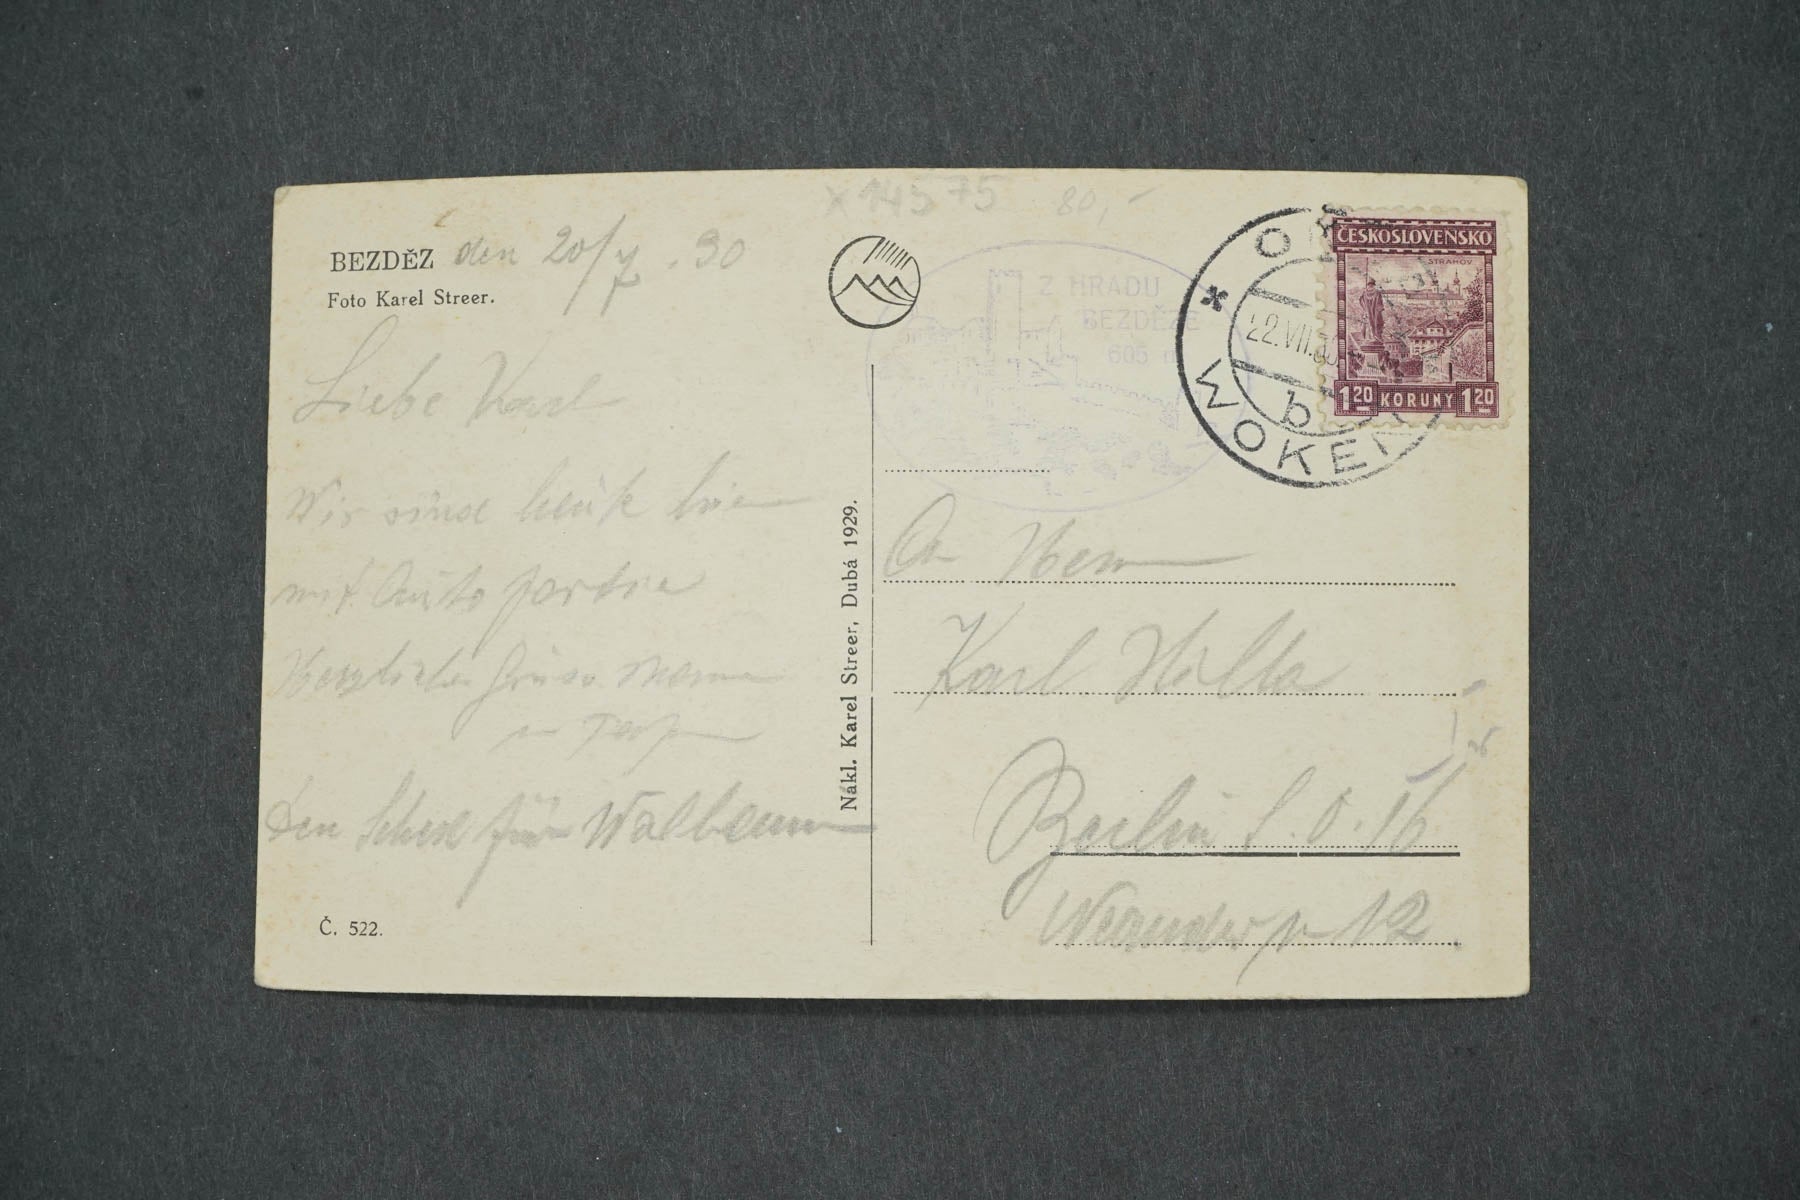 x 14575 80,-
BEZDĚZ den 20/7.30
Foto Karel Streer.
Liebe Karl
Wir sind heute hier
mit Auto partie
Herzliche Grüsse Mama
u
Den für
Č. 522.
Nákl. Karel Streer, Dubá 1929.
Z HRADU
BEZDĚZE
605 m
OK
22.VII.30
b
WOKEN
ČESKOSLOVENSKO
STRAHOV
1 20 KORUNY 1 20
An Herrn
Karl Holla
Berlin S.O. 16
12